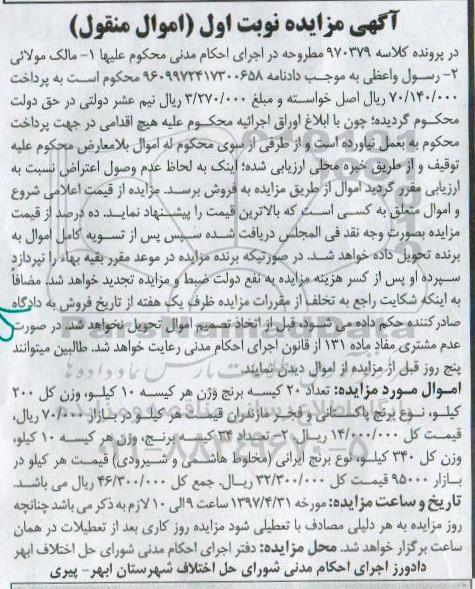 آگهی مزایده نوبت اول (اموال منقول)
در پرونده کلاسه ۹۷۰۳۷۹ مطروحه در اجرای احکام مدنی محکوم علیها ۱- مالک مولائی
۲- رسول واعظی به موجب دادنامه ۹۶۰۹۹۷۲۴۱۷۳۰۰۶۵۸ محکوم است به پرداخت
۷۰/۱۴۰/۰۰۰ ریال اصل خواسته و مبلغ ۳/۲۷۰/۰۰۰ ریال نیم عشر دولتی در حق دولت
محکوم گردیده؛ چون با ابلاغ اوراق اجرائیه محکوم علیه هیچ اقدامی در جهت پرداخت
محکوم به بعمل نیاورده است و از طرفی از سوی محکوم له اموال بلامعارض محکوم علیه
توقیف و از طریق خبره محلی ارزیابی شده؛ اینک به لحاظ عدم وصول اعتراض نسبت به
ارزیابی مقرر گردید اموال از طریق مزایده به فروش برسد. مزایده از قیمت اعلامی شروع
و اموال متعلق به کسی است که بالاترین قیمت را پیشنهاد نماید. ده درصد از قیمت
مزایده بصورت وجه نقد فی المجلس دریافت شده سپس پس از تسویه کامل اموال به
برنده تحویل داده خواهد شد. در صورتیکه برنده مزایده در موعد مقرر بقیه بهاء را نپردازد
سپرده او پس از کسر هزینه مزایده به نفع دولت ضبط و مزایده تجدید خواهد شد. مضافاً
به اینکه شکایت راجع به تخلف از مقررات مزایده ظرف یک هفته از تاریخ فروش به دادگاه
صادرکننده حکم داده می شود، قبل از اتخاذ تصمیم اموال تحویل نخواهد شد. در صورت
عدم مشتری مفاد ماده ۱۳۱ از قانون اجرای احکام مدنی رعایت خواهد شد. طالبین میتوانند
پنج روز قبل از مزایده از اموال دیدن نمایند.
اموال مورد مزایده: تعداد ۲۰ کیسه برنج وزن هر کیسه ۱۰ کیلو، وزن کل ۲۰۰
کیلو، نوع برنج پاکستانی و فجر مازندران قیمت هر کیلو در بازار ۷۰/۰۰۰ ریال،
قیمت کل ۱۴/۰۰۰/۰۰۰ ریال. ۲- تعداد ۳۴ کیسه برنج، وزن هر کیسه ۱۰ کیلو،
وزن کل ۳۴۰ کیلو، نوع برنج ایرانی (مخلوط هاشمی و شیرودی) قیمت هر کیلو در
بازار ۹۵۰۰۰ قیمت کل ۳۲/۳۰۰/۰۰۰ ریال. جمع کل ۴۶/۳۰۰/۰۰۰ ریال می باشد.
تاریخ و ساعت مزایده: مورخه ۱۳۹۷/۴/۳۱ ساعت ۹ الی ۱۰ لازم به ذکر می باشد چنانچه
روز مزایده به هر دلیلی مصادف با تعطیلی شود مزایده روز کاری بعد از تعطیلات در همان
ساعت برگزار خواهد شد. محل مزایده: دفتر اجرای احکام مدنی شورای حل اختلاف ابهر
دادورز اجرای احکام مدنی شورای حل اختلاف شهرستان ابهر- پیری